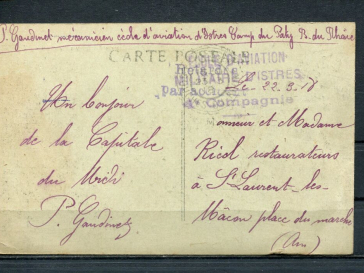 P. Gaudinet mécanicien école d'aviation d'Istres Camp du Paty B. du Rhône
CARTE POSTALE
AVIATION
MILITAIRE D'ISTRES
4e Compagnie
22.9.18
Un bonjour
de la Capitale
du Midi
P. Gaudinet
Monsieur et Madame
Ricol restaurateurs
à St Laurent-les-
Mâcon place du marché
(Ain)